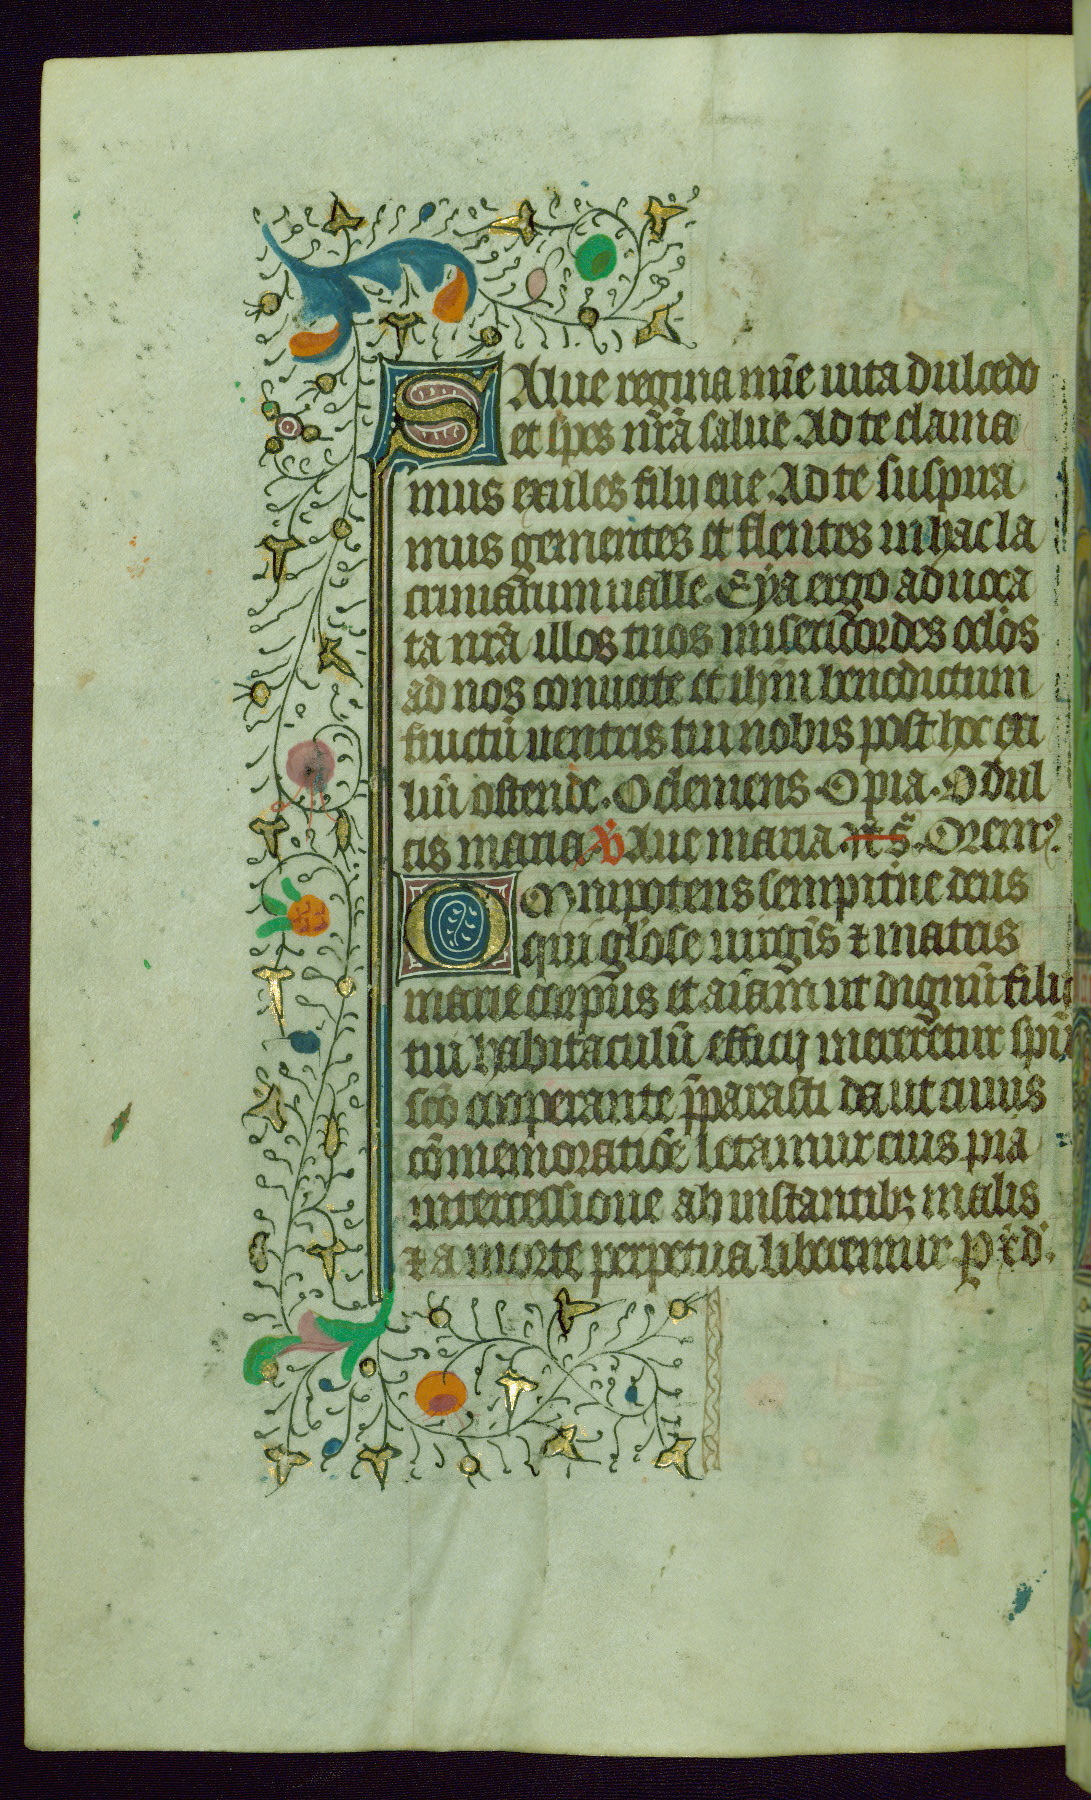 SAlue regina mīe uita dulcedo
et spes nr̄ā salue Ad te clama
mus exules filij eue. Ad te suspira
mus gementes et flentes in hac la
crimarum ualle. Eya ergo aduoca
ta nr̄a illos tuos misericordes oc̄los
ad nos conuerte et ihm̄ benedictum
fructū uentris tui nobis post hoc exi
liū ostende. O clemens. O pia. O dul
cis maria. V Aue maria. Orem⁹.
OMnipotens sempitne deus
qui gl'ose uirgīs ⁊ matris
marie corpus et aīam ut dignū filij
tui habitaculū effici mereretur spū
scō cooperante p̄parasti da ut cuius
cōmemoratiōe letamur eius pia
intercessione ab instantibꝫ malis
⁊ a morte perpetua liberemur p xd̄.